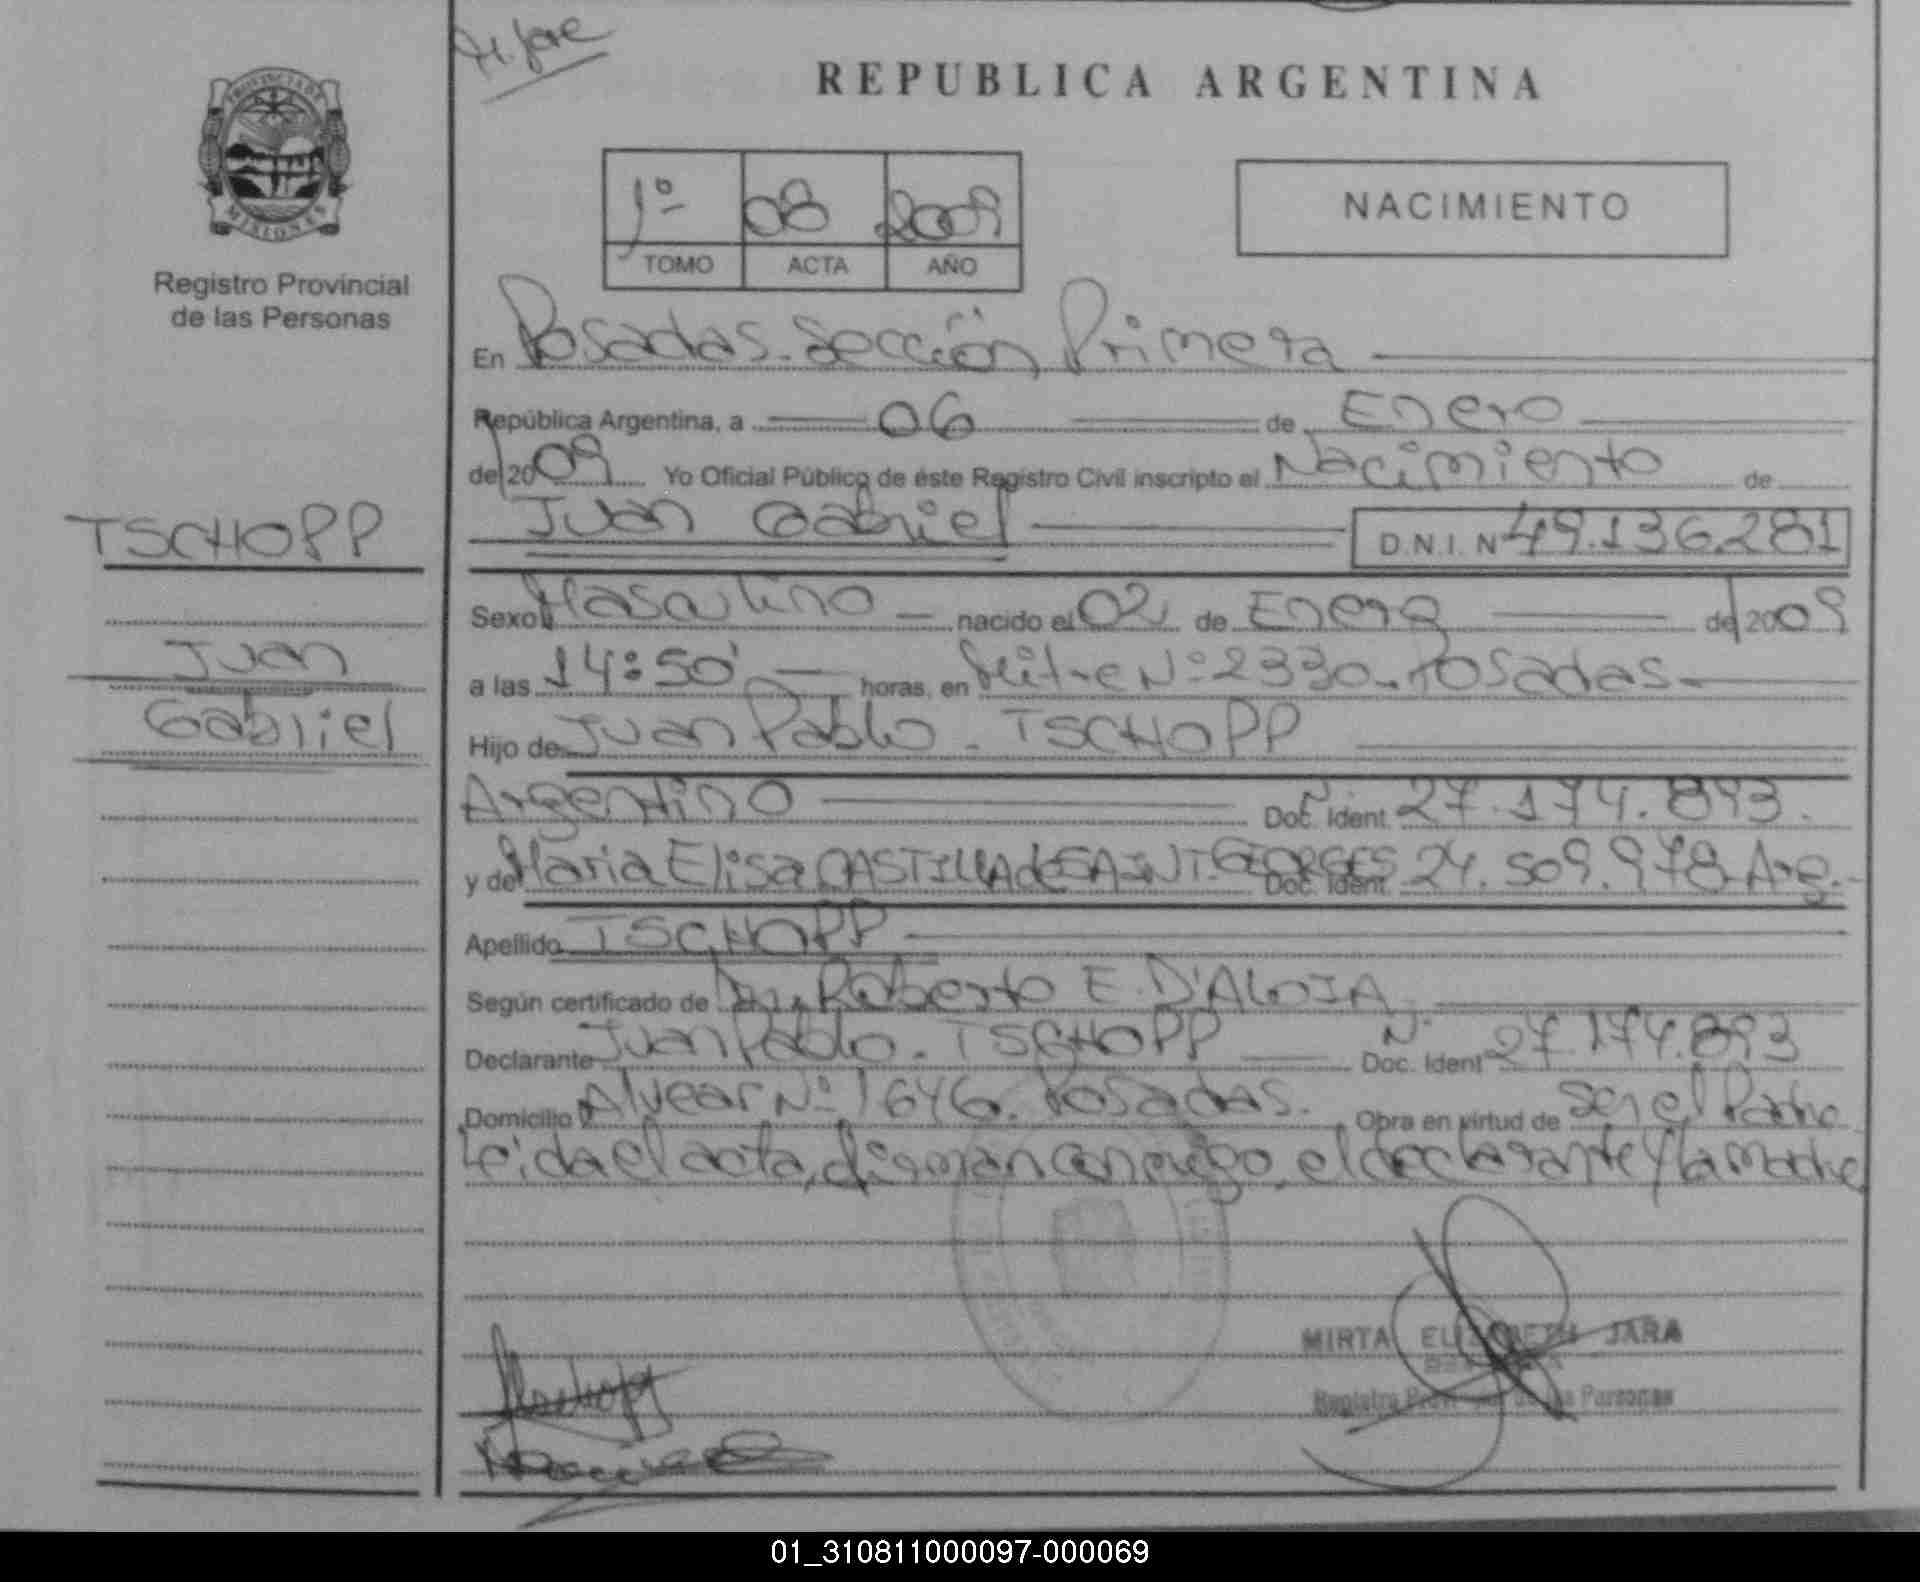 PROVINCIA DE
MISIONES
Registro Provincial
de las Personas
TSCHOPP
Juan
Gabriel
REPUBLICA ARGENTINA
1º 08 2009
TOMO ACTA AÑO
NACIMIENTO
En Posadas. Sección Primera
República Argentina, a 06 de Enero
de 2009 Yo Oficial Público de éste Registro Civil inscripto el Nacimiento de
Juan Gabriel D.N.I. N 49.136.281
Sexo Masculino nacido el 02 de Enero de 2009
a las 14:50' horas, en Mitre Nº 2330. Posadas.
Hijo de Juan Pablo. TSCHOPP
Argentino Doc. Ident. 27.174.893.
y de Maria Elisa CASTILLA de SAINT GEORGES Doc. Ident. 24.509.978 Arg.
Apellido TSCHOPP
Según certificado de Dr. Roberto E. D'ALOIA
Declarante Juan Pablo. TSCHOPP Doc. Ident Nº 27.174.893
Domicilio Alvear Nº 1646. Posadas. Obra en virtud de ser el Padre
Leida el acta, firman conmigo, el declarante y la madre
MIRTA ELIZABETH JARA
Registro Provincial de las Personas
01_310811000097-000069